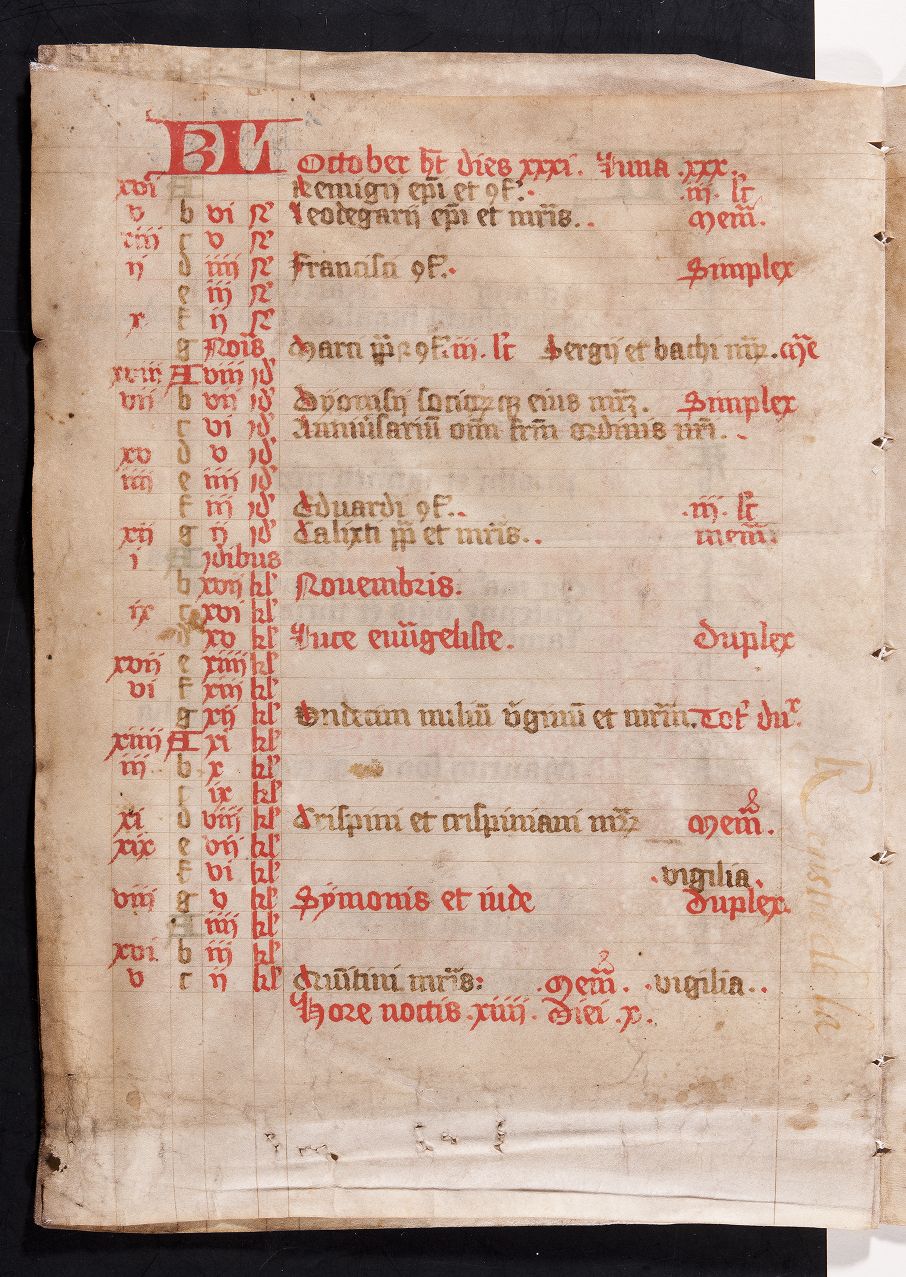 KL October ht dies xxxi. Luna .xxx.
xvi A Remigii epi et 9f. .iii. lc
v b vi N Leodegarii epi et mris. . Mem.
xiii c v N
ii d iiii N Francisci 9f. Simplex
e iii N
x f ii N
g Nois Marci pp 9f. iii. lc Sergii et bachi mr.
xviii A viii id
vii b vii id Dyonisii sociorq eius mr. Simplex
c vi id Anniusariu oim frm ordinis nri. .
xv d v id
iiii e iiii id
f iii id Eduardi 9f. . .iii. lc
xii g ii id Calixti pp et mris. . mem.
i A idibus
b xvii kl Nouembris.
ix c xvi kl
d xv kl Luce euuageliste. Duplex
xvii e xiiii kl
vi f xiii kl
g xii kl Undecim miliu virginu et mrm. Tot dux
xiiii A xi kl
iii b x kl
c ix kl
xi d viii kl Crispini et crispiniani mr Mem.
xix e vii kl
f vi kl .vigilia.
viii g v kl Symonis et iude Duplex.
A iiii kl
xvi b iii kl
v c ii kl Quintini mris: .Mem. .vigilia. .
Hore noctis .xiiii. Diei .x.